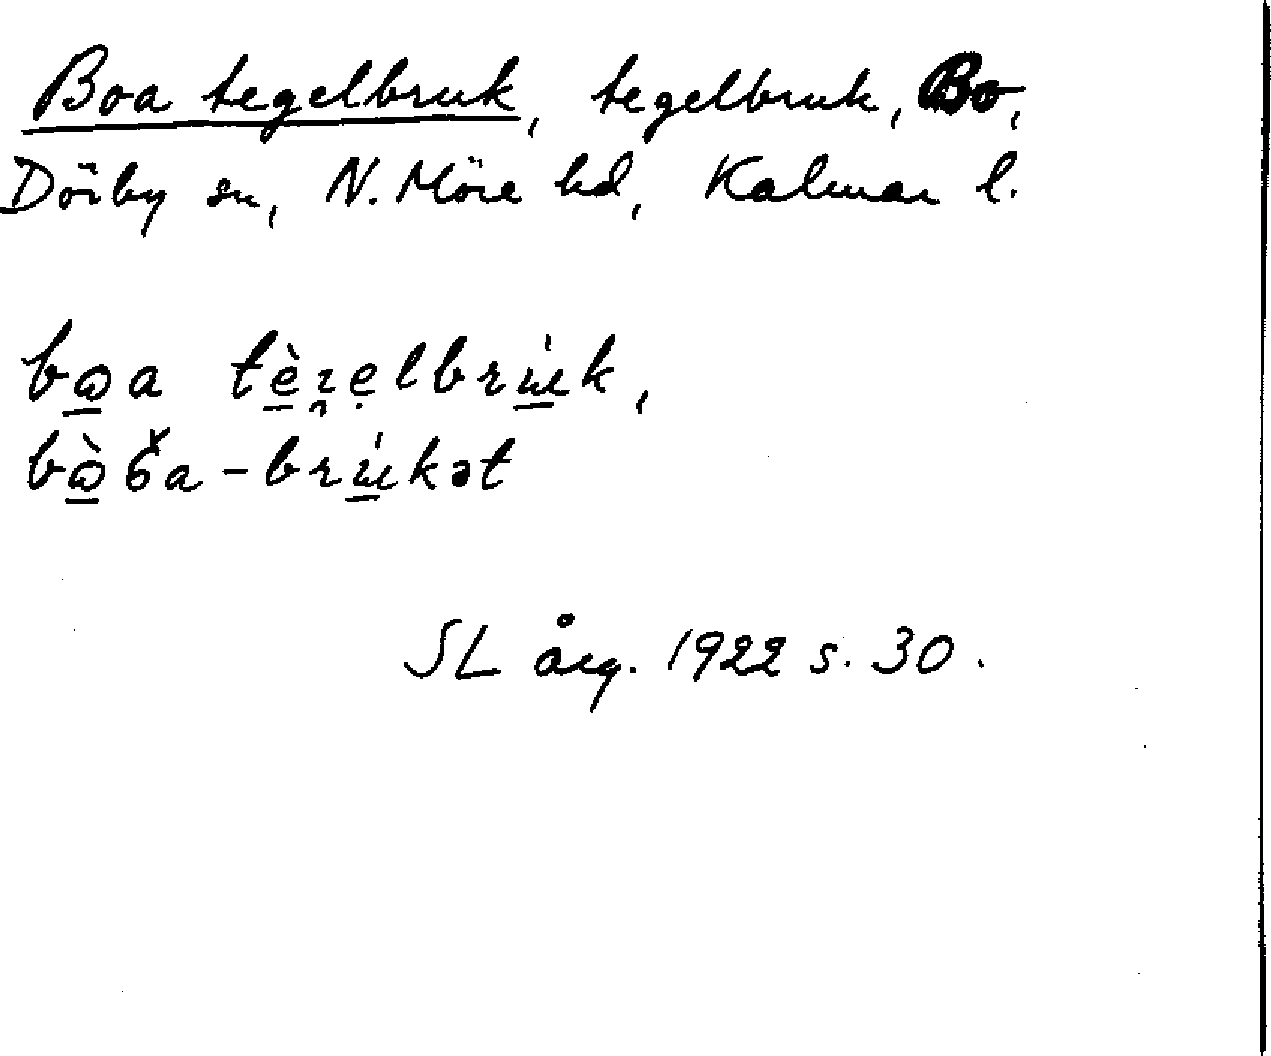 Boa tegelbruk, tegelbruk, Bo,
Dörby sn, N. Möre hd, Kalmar l.
bω̱a tè̱ꞇ̯ẹlbrɯ̱́k,
bὼ̱ϭ̌a-brɯ̱́kət
SL årg. 1922 s. 30.